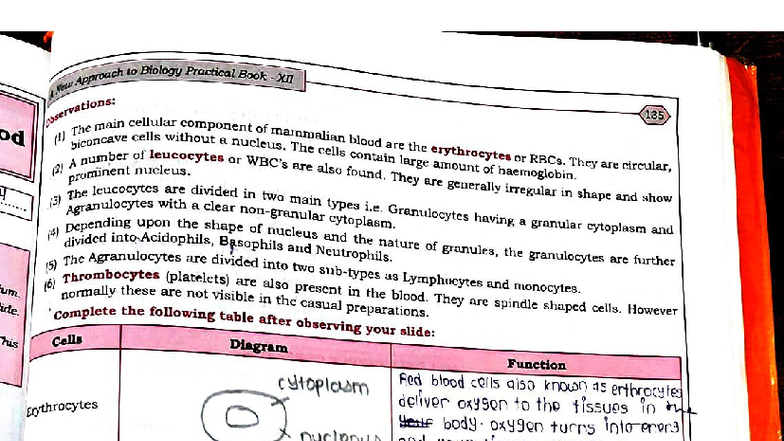 A New Approach to Biology Practical Book - XII
135
Observations:
(1) The main cellular component of mammalian blood are the erythrocytes or RBCs. They are circular,
biconcave cells without a nucleus. The cells contain large amount of haemoglobin.
(2) A number of leucocytes or WBC's are also found. They are generally irregular in shape and show
prominent nucleus.
(3) The leucocytes are divided in two main types i.e. Granulocytes having a granular cytoplasm and
Agranulocytes with a clear non-granular cytoplasm.
(4) Depending upon the shape of nucleus and the nature of granules, the granulocytes are further
divided into Acidophils, Basophils and Neutrophils.
(5) The Agranulocytes are divided into two sub-types as Lymphocytes and monocytes.
(6) Thrombocytes (platelets) are also present in the blood. They are spindle shaped cells. However
normally these are not visible in the casual preparations.
Complete the following table after observing your slide:
Cells
Diagram
Function
Erythrocytes
cytoplasm
Red blood cells also known as erthrocytes
deliver oxygen to the tissues in
body. oxygen turns into
od
um.
ide.
This